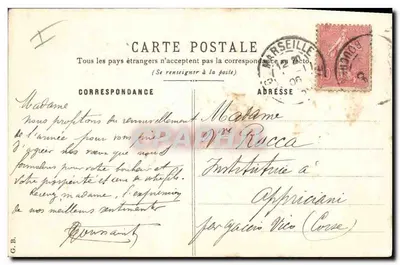 CARTE POSTALE
Tous les pays étrangers n'acceptent pas la correspondance au
(Se renseigner à la poste)
CORRESPONDANCE
ADRESSE
MARSEILLE
Madame
nous profitons du renouvellement
de l'année pour
que nous
formulons pour votre bonheur et
votre prospérité et ceux de
Recevez madame, l'expression
de nos meilleurs sentiments
Madame
Rocca
Institutrice à
Appriciani
par Vico (Corse)
G. B.